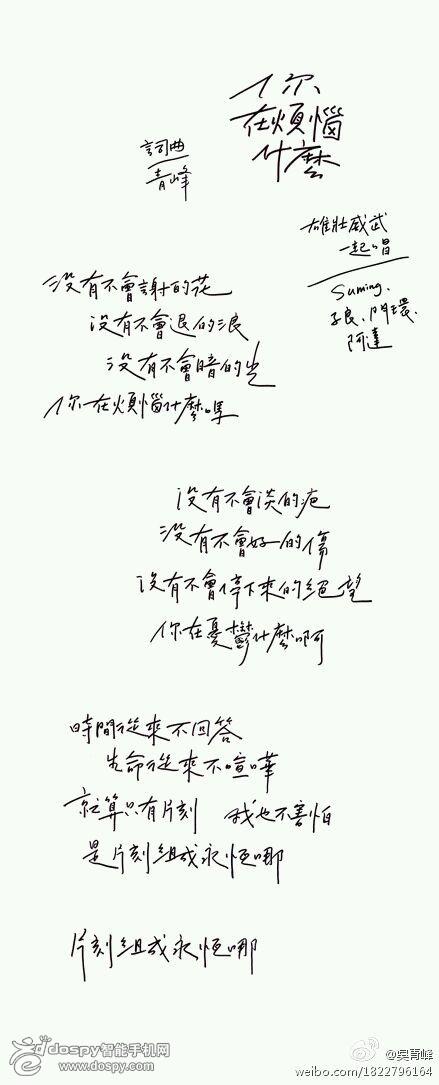 你
在煩惱
什麼
詞曲
青峰
雄壯威武
一起唱
Suming、
子良、閂環、
阿達
沒有不會謝的花
沒有不會退的浪
沒有不會暗的光
你在煩惱什麼嗎
沒有不會淡的疤
沒有不會好的傷
沒有不會停下來的絕望
你在憂鬱什麼啊
時間從來不回答
生命從來不喧嘩
就算只有片刻 我也不害怕
是片刻組成永恆哪
片刻組成永恆哪
dospy智能手机网
www.dospy.com
@吴青峰
weibo.com/1822796164